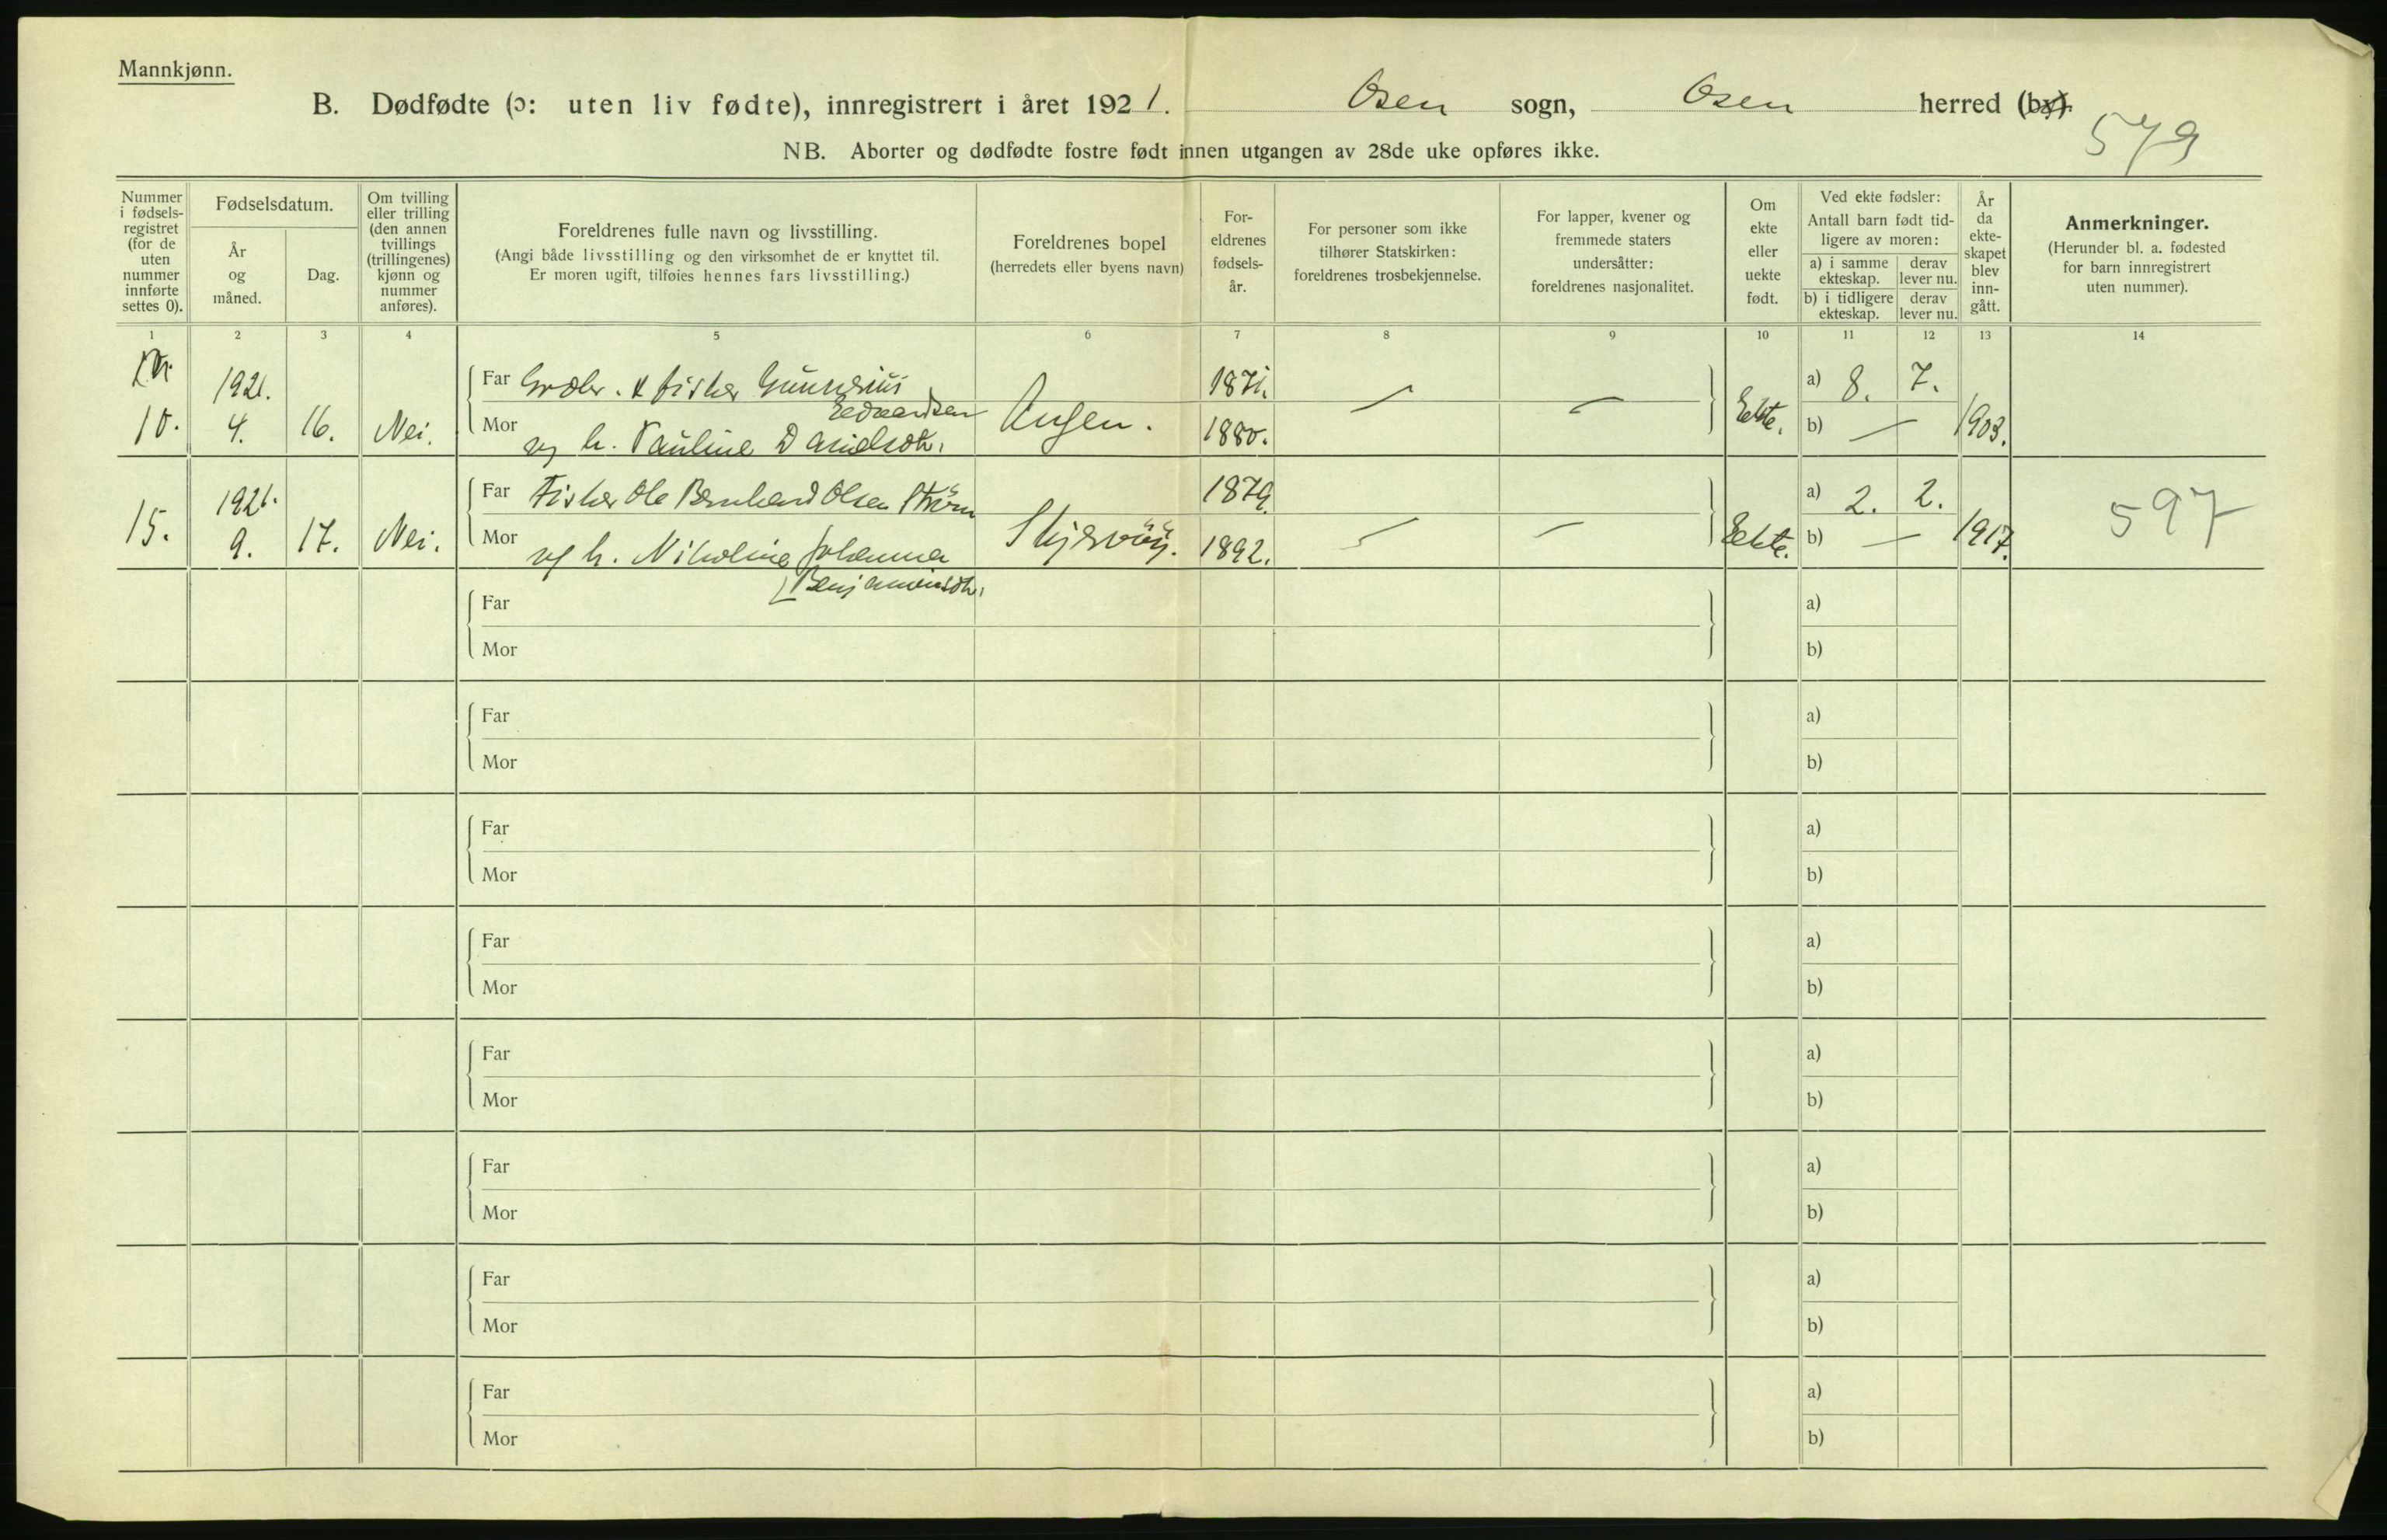 Mannkjønn.
B. Dødfødte (ɔ: uten liv fødte), innregistrert i året 1921. Osen sogn, Osen herred (by).
579
NB. Aborter og dødfødte fostre født innen utgangen av 28de uke opføres ikke.
Nummer i fødsels-registret (for de uten nummer innførte settes 0).
Fødselsdatum.
År og måned.
Dag.
Om tvilling eller trilling (den annen tvillings (trillingenes) kjønn og nummer anføres).
Foreldrenes fulle navn og livsstilling.
(Angi både livsstilling og den virksomhet de er knyttet til.
Er moren ugift, tilføies hennes fars livsstilling.)
Foreldrenes bopel
(herredets eller byens navn)
For-eldrenes fødsels-år.
For personer som ikke tilhører Statskirken: foreldrenes trosbekjennelse.
For lapper, kvener og fremmede staters undersåtter: foreldrenes nasjonalitet.
Om ekte eller uekte født.
Ved ekte fødsler:
Antall barn født tid-ligere av moren:
a) i samme ekteskap.
derav lever nu.
b) i tidligere ekteskap.
derav lever nu.
År da ekte-skapet blev inn-gått.
Anmerkninger.
(Herunder bl. a. fødested for barn innregistrert uten nummer).
1 2 3 4 5 6 7 8 9 10 11 12 13 14
Nr.
10. 1921. 4. 16. Nei.
Far fisker Edvardsen 1871. a) 8. 7.
Mor og h. Pauline Danielsdtr. 1880. Ekte. b) — 1903.
15. 1921. 9. 17. Nei.
Far Fisker Ole Bernhard Olsen Strøm 1879. a) 2. 2.
Mor og h. Nikoline Johanna Benjaminsdtr. 1892. Ekte. b) — 1917.
597
Far a)
Mor b)
Far a)
Mor b)
Far a)
Mor b)
Far a)
Mor b)
Far a)
Mor b)
Far a)
Mor b)
Far a)
Mor b)
Far a)
Mor b)